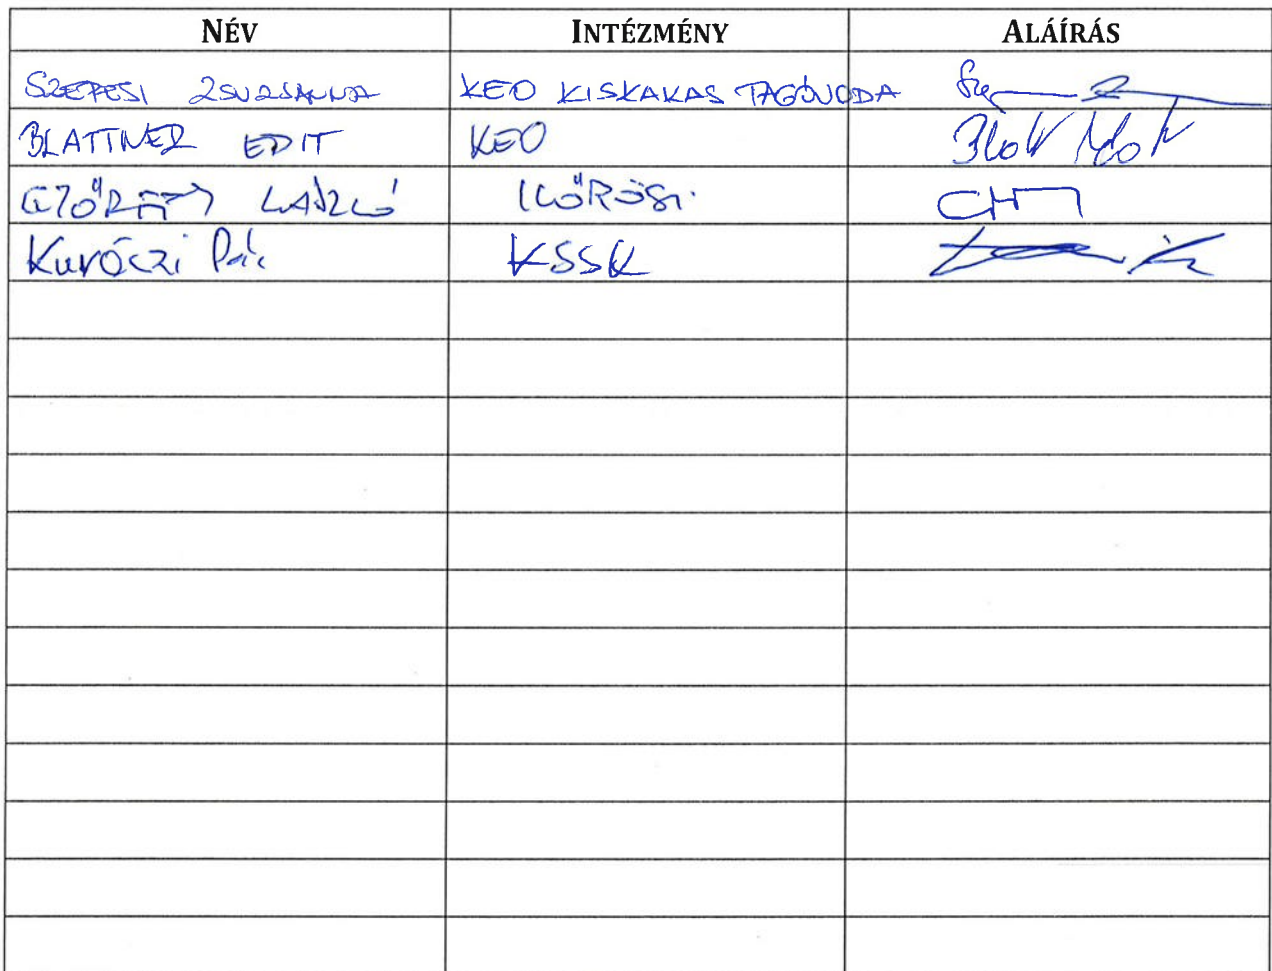 NÉV INTÉZMÉNY ALÁÍRÁS
SZEPESI ZSUZSANNA KEO KISKAKAS TAGÓVODA
BLATTNER EDIT KEO
LÁSZLÓ KŐRÖSI
Kuróczi Pál KSSK